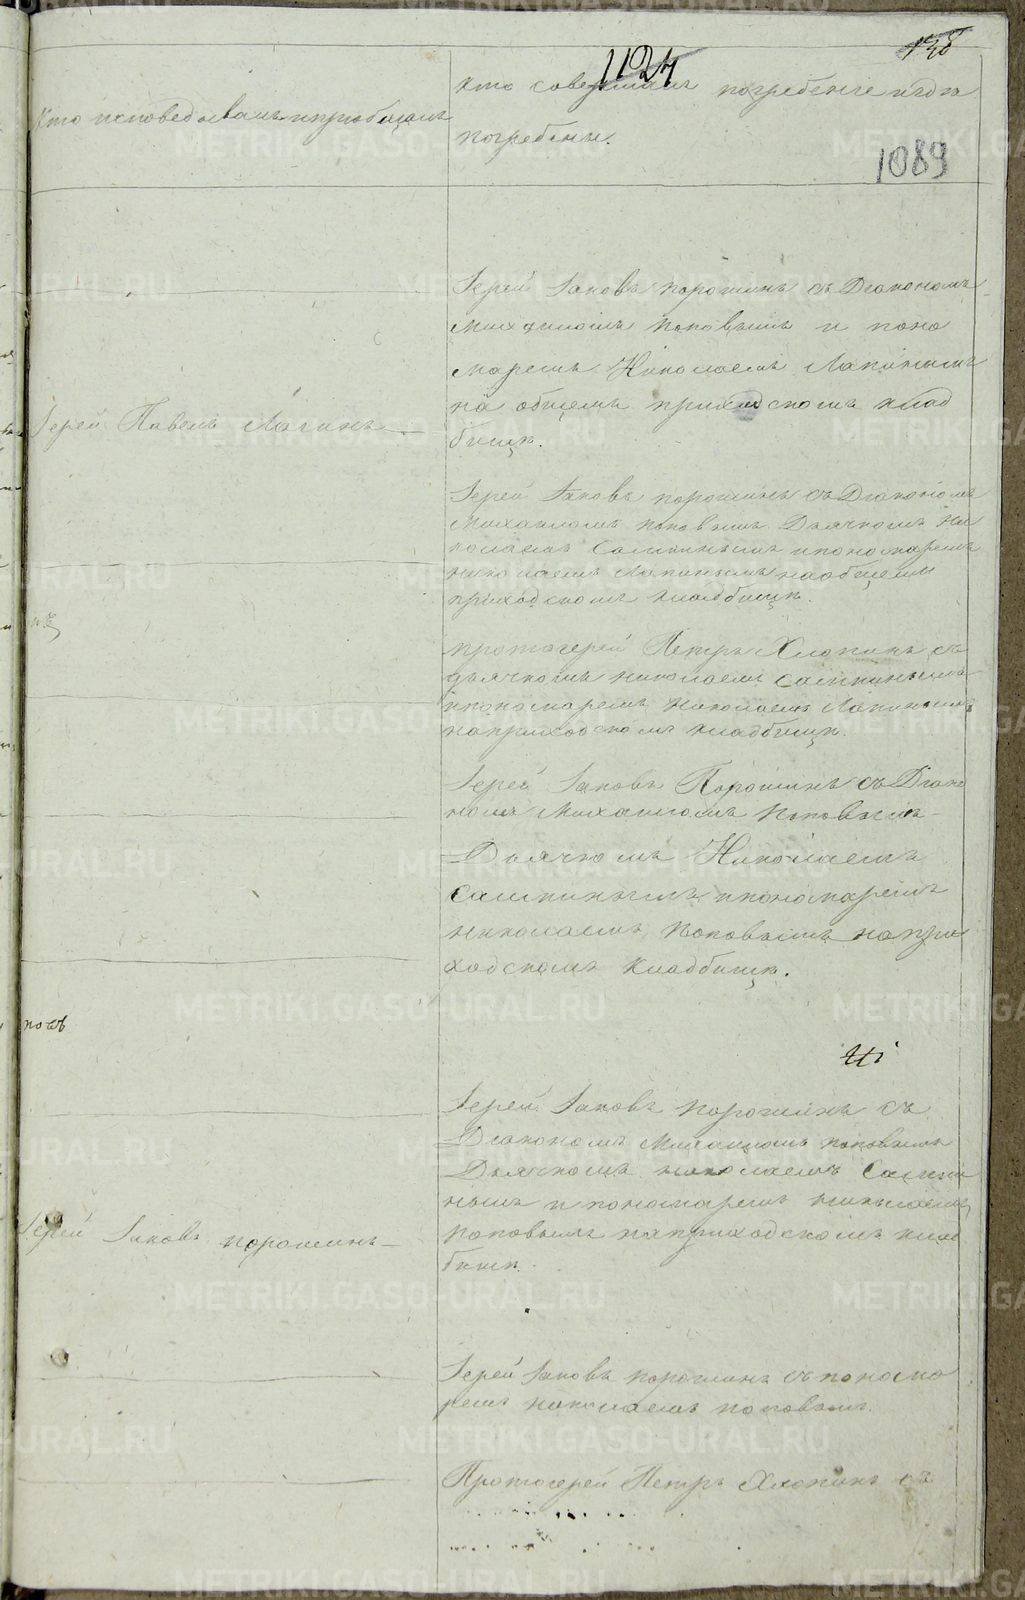 1124
138
Кто исповедовалъ и приобщалъ
Кто совершалъ погребение и гдѣ
погребены.
1089
Іерей Іаковъ Порошинъ съ Діакономъ
Михаиломъ Поповымъ и поно
маремъ Николаемъ Лапинымъ
на общемъ приходскомъ клад
бищѣ.
Іерей Павелъ
Іерей Іаковъ Порошинъ съ Діакономъ
Михаиломъ Поповымъ Дьячкомъ Ни
колаемъ и пономаремъ
Николаемъ Лапинымъ на общемъ
приходскомъ кладбищѣ.
Протоіерей Петръ Хлопинъ съ
дьячкомъ Николаемъ
и пономаремъ Николаемъ Лапинымъ
на приходскомъ кладбищѣ.
Іерей Іаковъ Порошинъ съ Діако
номъ Михаиломъ Поповымъ
Дьячкомъ Николаемъ
и пономаремъ
Николаемъ Поповымъ на при
ходскомъ кладбищѣ.
Іерей Іаковъ Порошинъ съ
Діакономъ Михаиломъ Поповымъ
Дьячкомъ Николаемъ
нымъ и пономаремъ Николаемъ
Поповымъ на приходскомъ клад
бищѣ.
Іерей Іаковъ Порошинъ
Іерей Іаковъ Порошинъ съ понома
ремъ Николаемъ Поповымъ.
Протоіерей Петръ Хлопинъ съ
METRIKI.GASO-URAL.RU